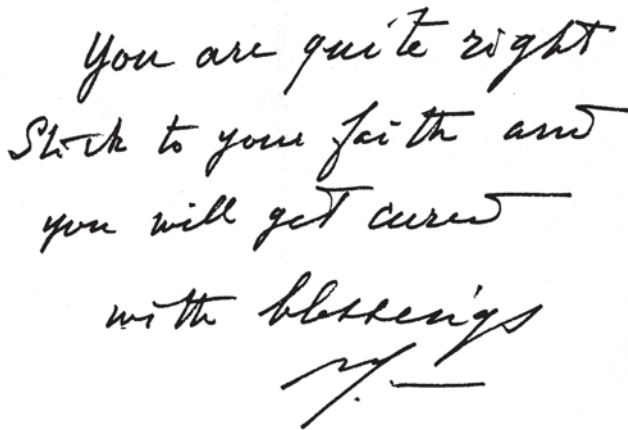 You are quite right
Stick to your faith and
you will get cured
with blessings
M. —